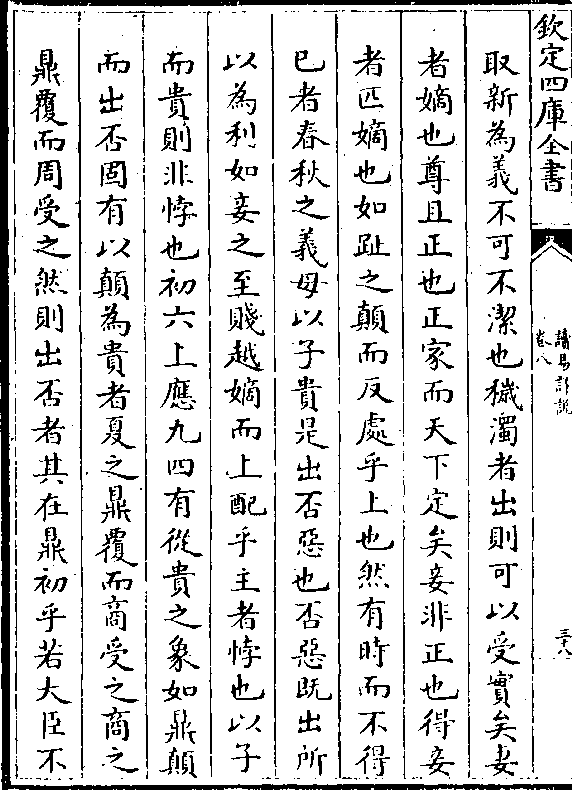 欽定四庫全書
讀易詳說
卷八
三十八
取新為義不可不潔也穢濁者出則可以受實矣妻
者嫡也尊且正也正家而天下定矣妾非正也得妾
者匹嫡也如趾之顛而反處乎上也然有時而不得
已者春秋之義母以子貴是出否惡也否惡既出所
以為利如妾之至賤越嫡而上配乎主者悖也以子
而貴則非悖也初六上應九四有從貴之象如鼎顛
而出否固有以顛為貴者夏之鼎覆而商受之商之
鼎覆而周受之然則出否者其在鼎初乎若大臣不